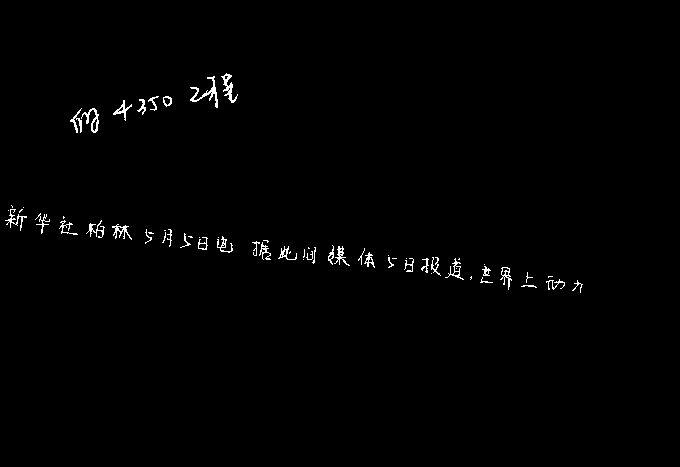 的4350工程
新华社柏林5月5日电 据此间媒体5日报道,世界上动力